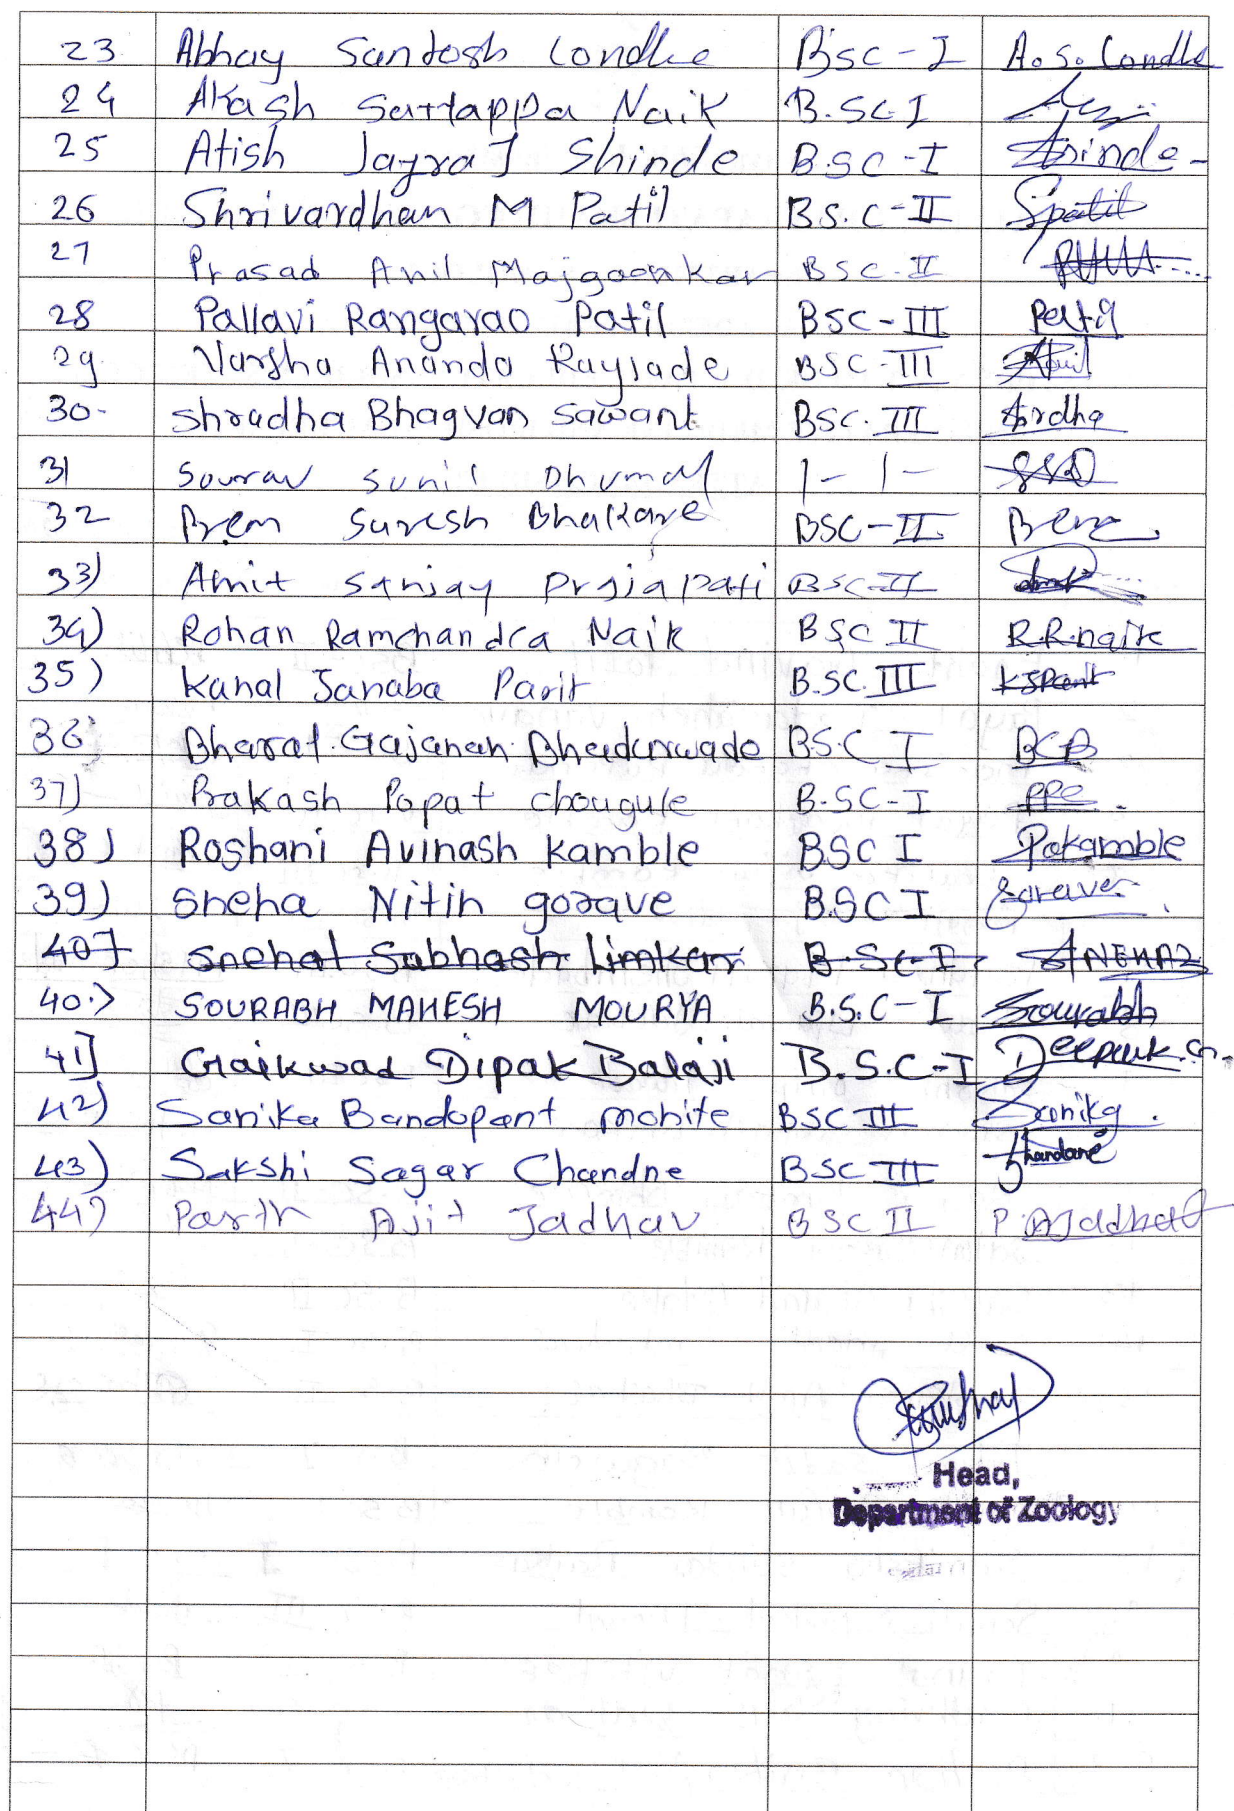 23 Abhay Santosh Londhe BSC-I A.S. Londhe
24 Akash Sattappa Naik B.SC.I
25 Atish Jayraj Shinde B.SC-I Shinde
26 Shrivardhan M Patil BS.C-II Spatil
27 Prasad Anil Majgaonkar BSC-II
28 Pallavi Rangarao Patil BSC-III Patil
29 Varsha Ananda Rayjade BSC-III
30- Shradha Bhagvan Sawant BSC.III
31 Sourav Sunil Dhumal 1-1- SSD
32 Prem Suresh Bhakare BSC-II
33) Amit Sanjay Prajapati BSC-II
34) Rohan Ramchandra Naik BSC II R.R.naik
35) Kanal Janaba Parit B.SC.III KJParit
36) Bharat Gajanan BS.C I BGB
37) Prakash Popat Chougule B.SC-I PPC
38) Roshani Avinash Kamble BSC I
39) Sneha Nitin gorave B.SC I
40] Snehal Subhash Limkar B.SC-I
40.) SOURABH MAHESH MOURYA B.S.C-I Sourabh
41] Gaikwad Dipak Balaji B.S.C-I Deepak.G.
42) Sanika Bandopant mohite BSC III Sanika.
43) Sakshi Sagar Chandne BSC III
44) Parth Ajit Jadhav BSC II P.AJadhav
Head,
Department of Zoology